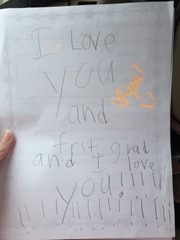 I Love
you
and
frst grad
and I love
you!!!!!!
!!!!!!!!!!!!!